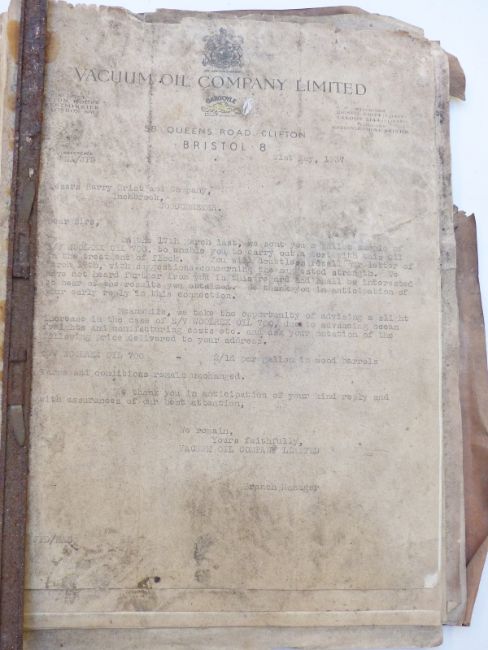 VACUUM OIL COMPANY LIMITED
GARGOYLE
58 QUEENS ROAD, CLIFTON
BRISTOL 8
21st May, 1937
Messrs Harry Grist and Company,
Inchbrook,
Dear Sirs,
On the 17th March last, we sent you a sample of
WOOLREX OIL 700, to enable you to carry out a test with this oil
in the treatment of flock. You will doubtless recall our letter of
March 19th, with suggestions concerning the suggested strength. We
have not heard further from you in this regard and shall be interested
to hear of the results you obtained. We thank you in anticipation of
your early reply in this connection.
Meanwhile, we take the opportunity of advising a slight
increase in the case of B/V WOOLREX OIL 700, due to advancing ocean
freights and manufacturing costs etc. and ask your notation of the
following price delivered to your address.
B/V WOOLREX OIL 700 - 2/1d per gallon in wood barrels
Terms and conditions remain unchanged.
We thank you in anticipation of your kind reply and
with assurances of our best attention,
We remain,
Yours faithfully,
VACUUM OIL COMPANY LIMITED
Branch Manager